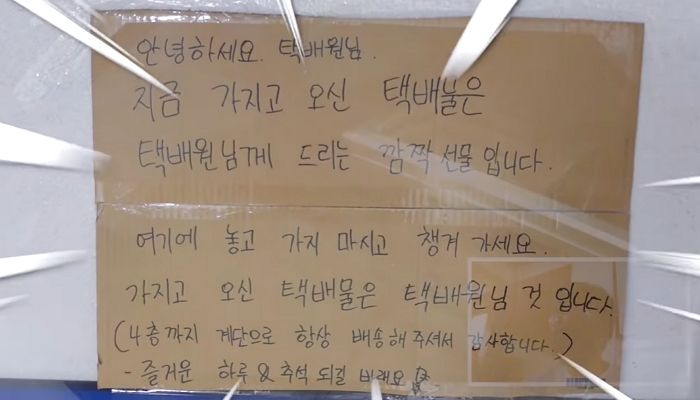 안녕하세요. 택배원님.
지금 가지고 오신 택배물은
택배원님께 드리는 깜짝 선물 입니다.
여기에 놓고 가지 마시고 챙겨 가세요.
가지고 오신 택배물은 택배원님 것 입니다.
(4층까지 계단으로 항상 배송해주셔서 감사합니다.)
- 즐거운 하루 & 추석 되길 바래요